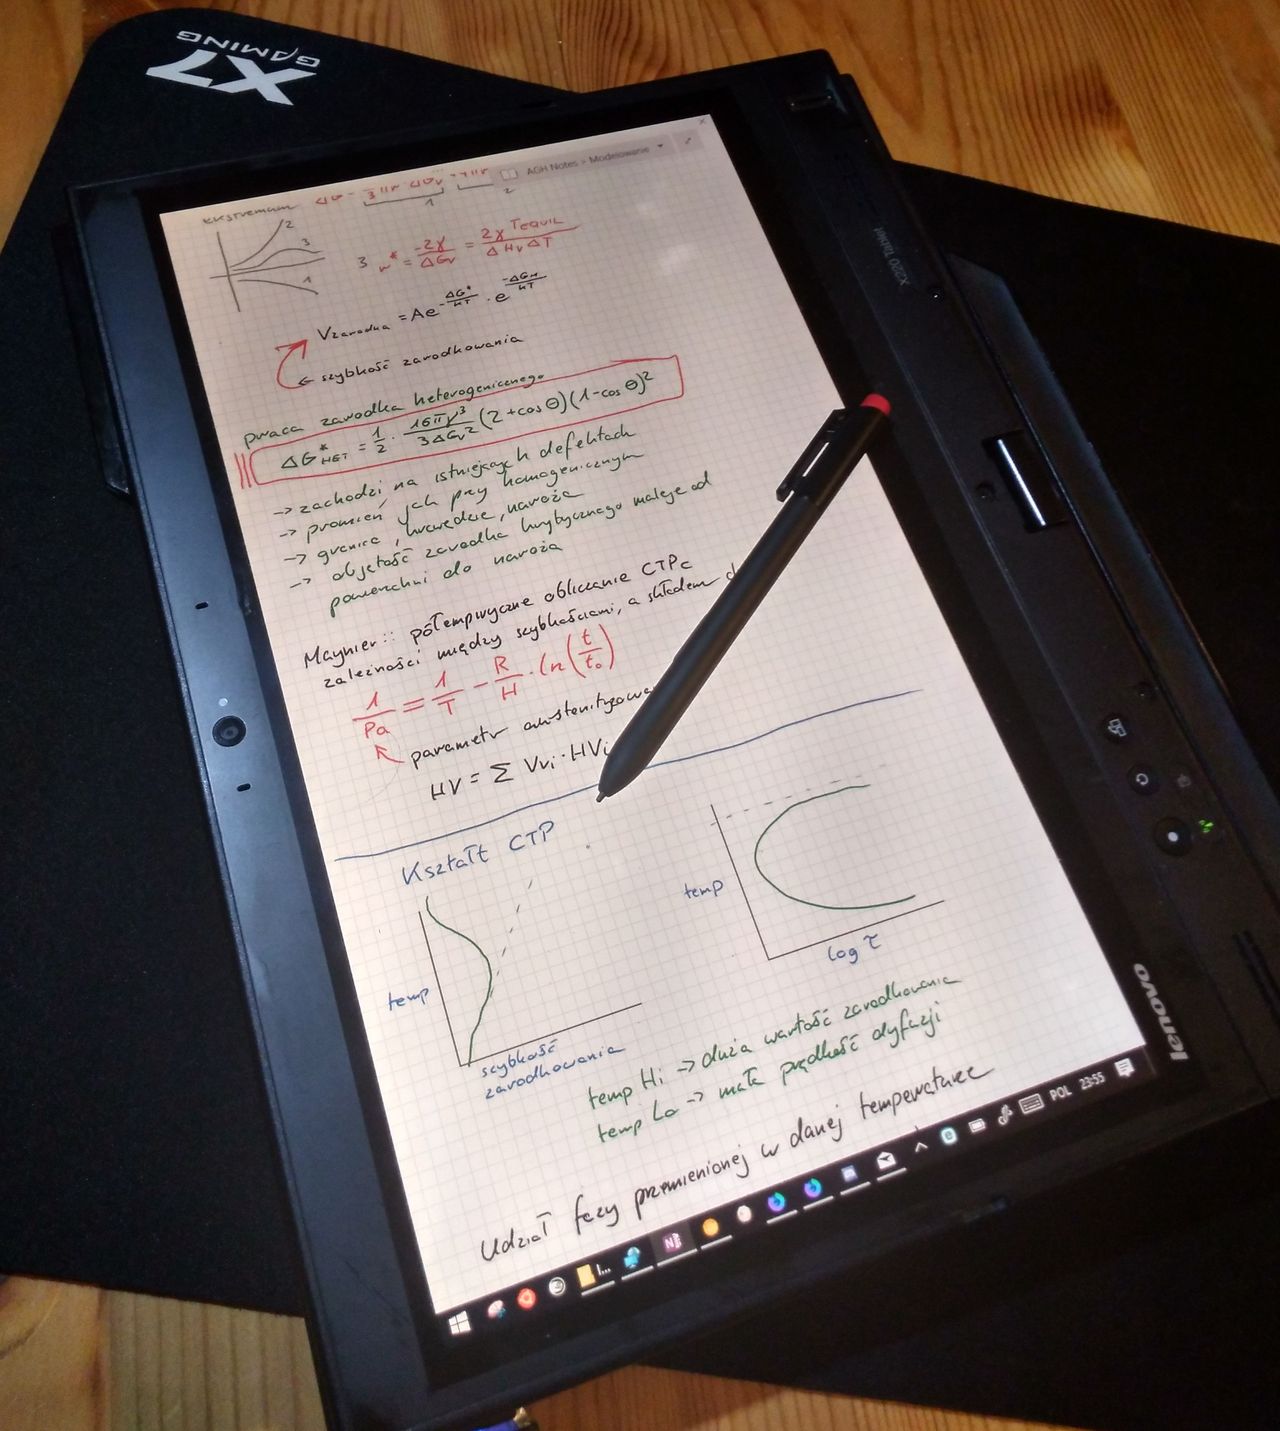 X7
GAMING
AGH Notes > Modelowanie
ekstremum
1
2
2
3
1
3 r* = -2γ/ΔGv = 2γ TEQUIL/ΔHvΔT
Vzarodka = Ae^(-ΔG*/kT) · e^(-ΔGM/kT)
← szybkość zarodkowania
praca zarodka heterogenicznego
ΔG*HET = 1/2 · 16πγ³/3ΔGv² (2+cosΘ)(1-cosΘ)²
-> zachodzi na istniejących defektach
-> promień jak przy homogenicznym
-> granice, krawędzie, naroża
-> objętość zarodka krytycznego maleje od
powierzchni do naroża
Maynier:: półempiryczne obliczanie CTPc
zależności między szybkościami, a składem
1/Pa = 1/T - R/H · ln(t/t₀)
parametr austenityzowa
HV = Σ Vvi · HVi
Kształt CTP
temp
szybkość
zarodkowania
temp
log τ
temp Hi -> duża wartość zarodkowania
temp Lo -> mała prędkość dyfuzji
Udział fazy przemienionej w danej temperaturze
POL
23:55
X220 Tablet
lenovo